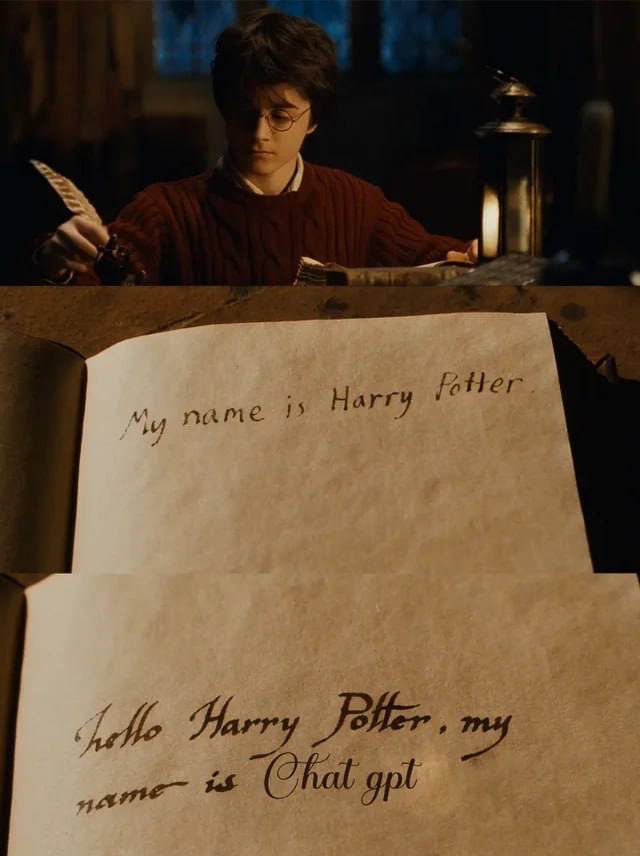 My name is Harry Potter.
hello Harry Potter, my
name is Chat gpt